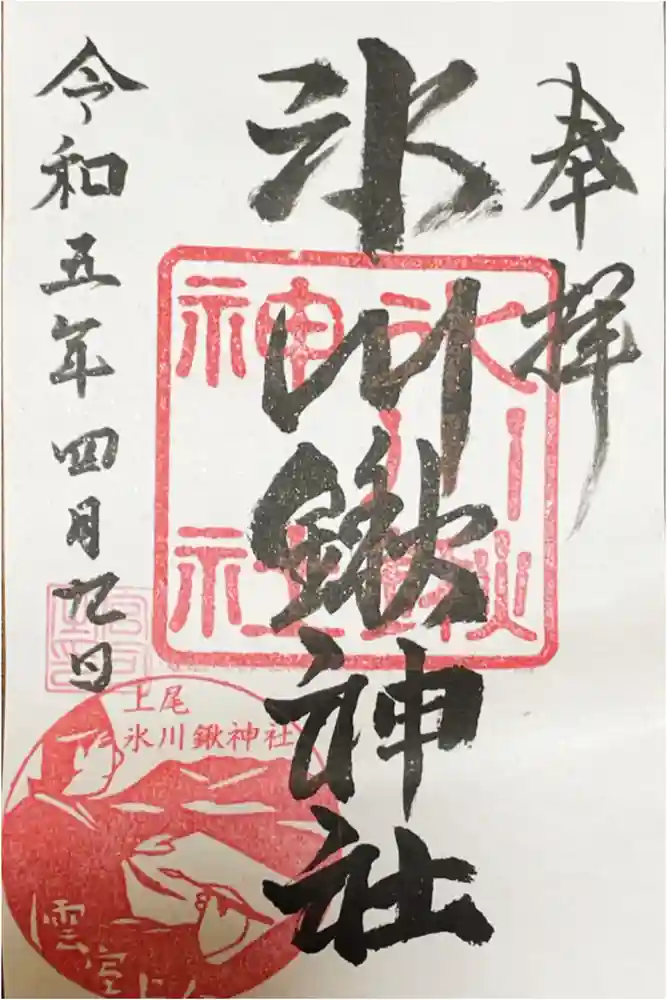 奉拝
氷川鍬神社
令和五年四月九日
氷川鍬神社
上尾
氷川鍬神社
雲室上人